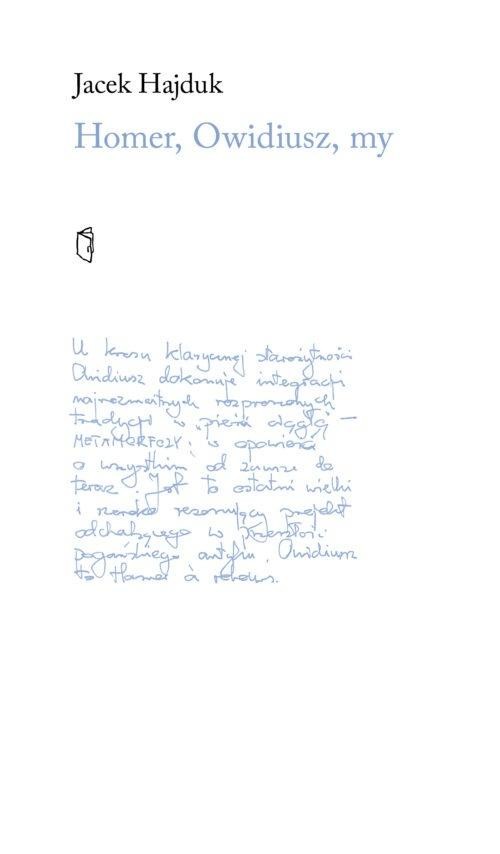 Jacek Hajduk
Homer, Owidiusz, my
U kresu klasycznej starożytności
Owidiusz dokonuje integracji
najrozmaitszych rozproszonych
tradycji w „pieśń ciągłą” —
METAMORFOZY; w opowieść
o wszystkim od zawsze do
teraz. Jest to ostatni wielki
i szeroko rezonujący projekt
odchodzącego w przeszłość
pogańskiego antyku. Owidiusz
to Homer à rebours.